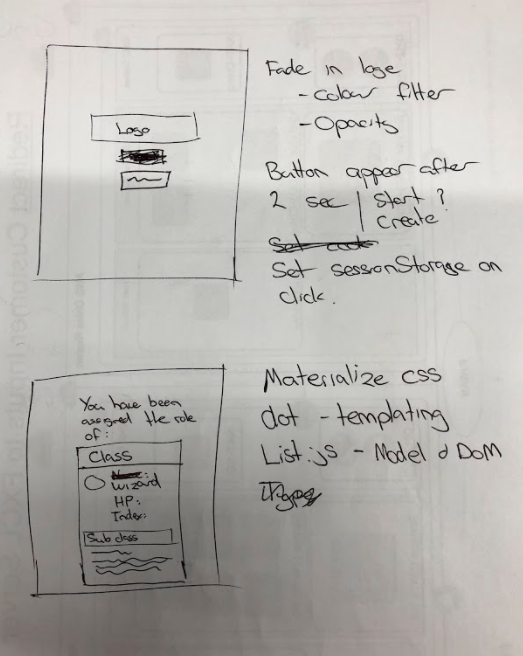 Logo
Fade in logo
- Colour filter
- Opacity
Button appear after
2 sec | Start ?
Create
Set cook
Set sessionStorage on
click.
You have been
assigned the role
of:
Class
Wizard
HP:
Index:
Sub class
Materialize css
dot - templating
List.js - Model & DOM